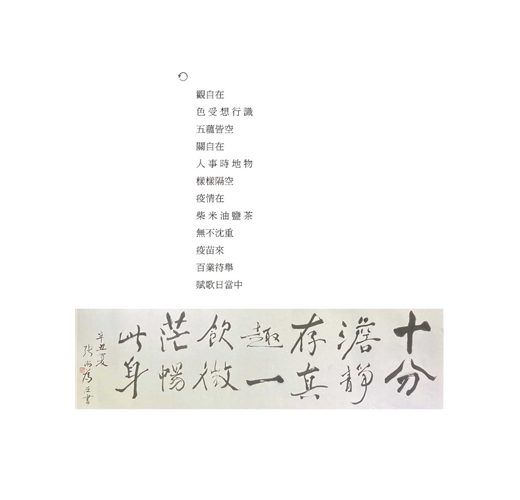 觀自在
色受想行識
五蘊皆空
關自在
人事時地物
樣樣隔空
疫情在
柴米油鹽茶
無不沈重
疫苗來
百業待舉
賦歌日當中
十分
澹靜
存真
趣一
飲微
茫暢
此身
辛丑夏